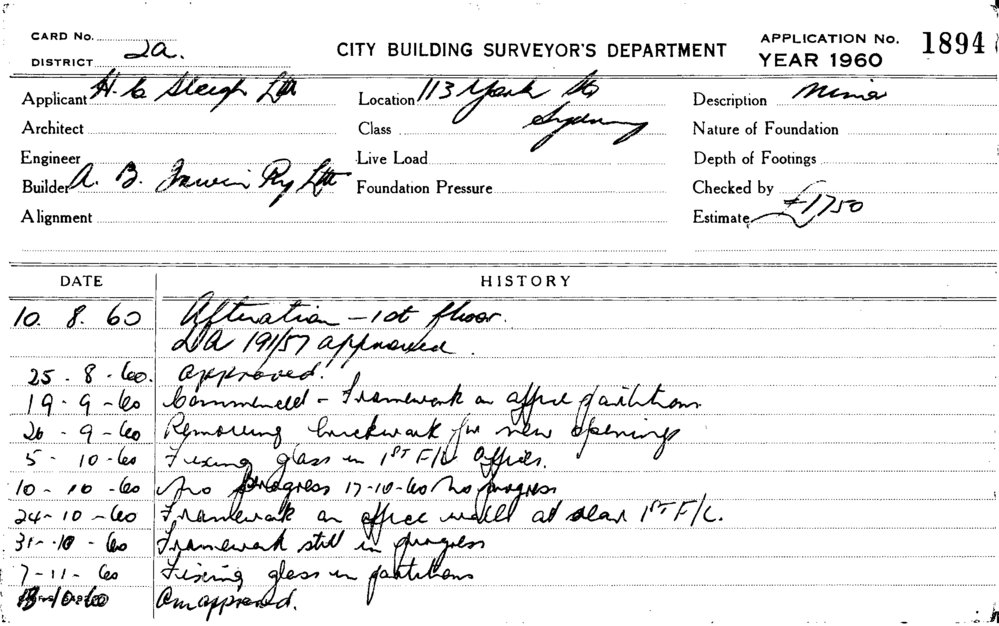 CARD No.
DISTRICT 2a.
CITY BUILDING SURVEYOR'S DEPARTMENT
APPLICATION No. 1894
YEAR 1960
Applicant H. C. Sleigh Ltd
Location 113 York St Sydney
Description Minor
Architect
Class
Nature of Foundation
Engineer
Live Load
Depth of Footings
Builder A. B. Pty Ltd
Foundation Pressure
Checked by
Alignment
Estimate £1750
DATE HISTORY
10. 8. 60 Alteration - 1st floor.
DA 191/57 approved.
25 - 8 - 60. approved.
19 - 9 - 60 Commenced - Framework on office partitions
26 - 9 - 60 Removing brickwork for new openings
5 - 10 - 60 Fixing glass in 1ST F/L offices.
10 - 10 - 60 No progress 17-10-60 No progress
24 - 10 - 60 Framework on office wall at rear 1ST F/L.
31 - 10 - 60 Framework still in progress
7 - 11 - 60 Fixing glass in partitions
10-60 approved.